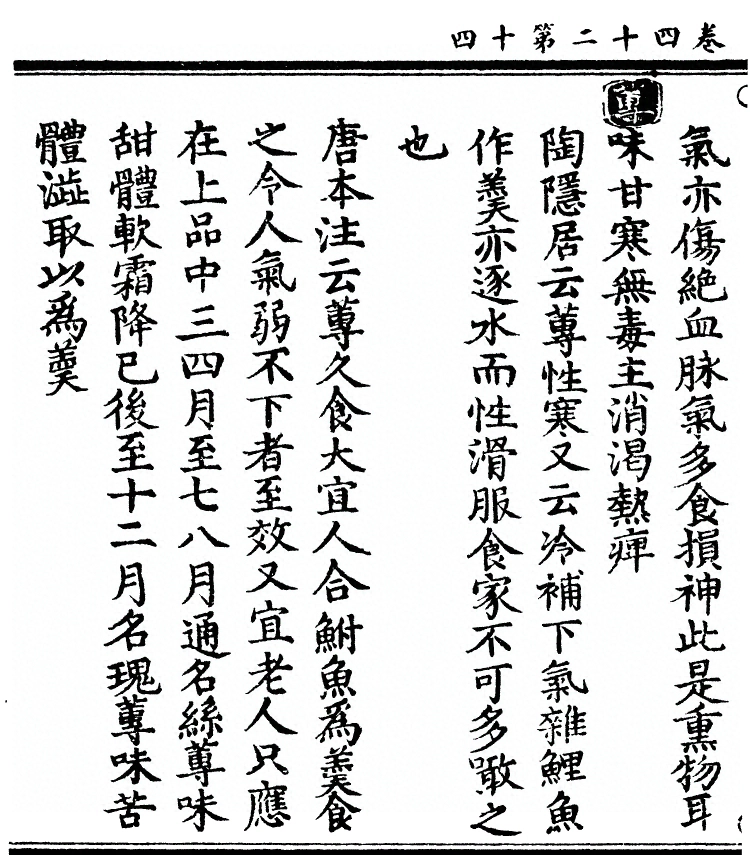 卷四十二第十四
氣亦傷絕血脉氣多食損神此是熏物耳
蓴
味甘寒無毒主消渴熱痺
陶隱居云蓴性寒又云冷補下氣雜鯉魚
作羹亦逐水而性滑服食家不可多噉之
也
唐本注云蓴久食大宜人合鮒魚爲羹食
之令人氣弱不下者至效又宜老人只應
在上品中三四月至七八月通名絲蓴味
甜體軟霜降已後至十二月名瑰蓴味苦
體澁取以爲羹